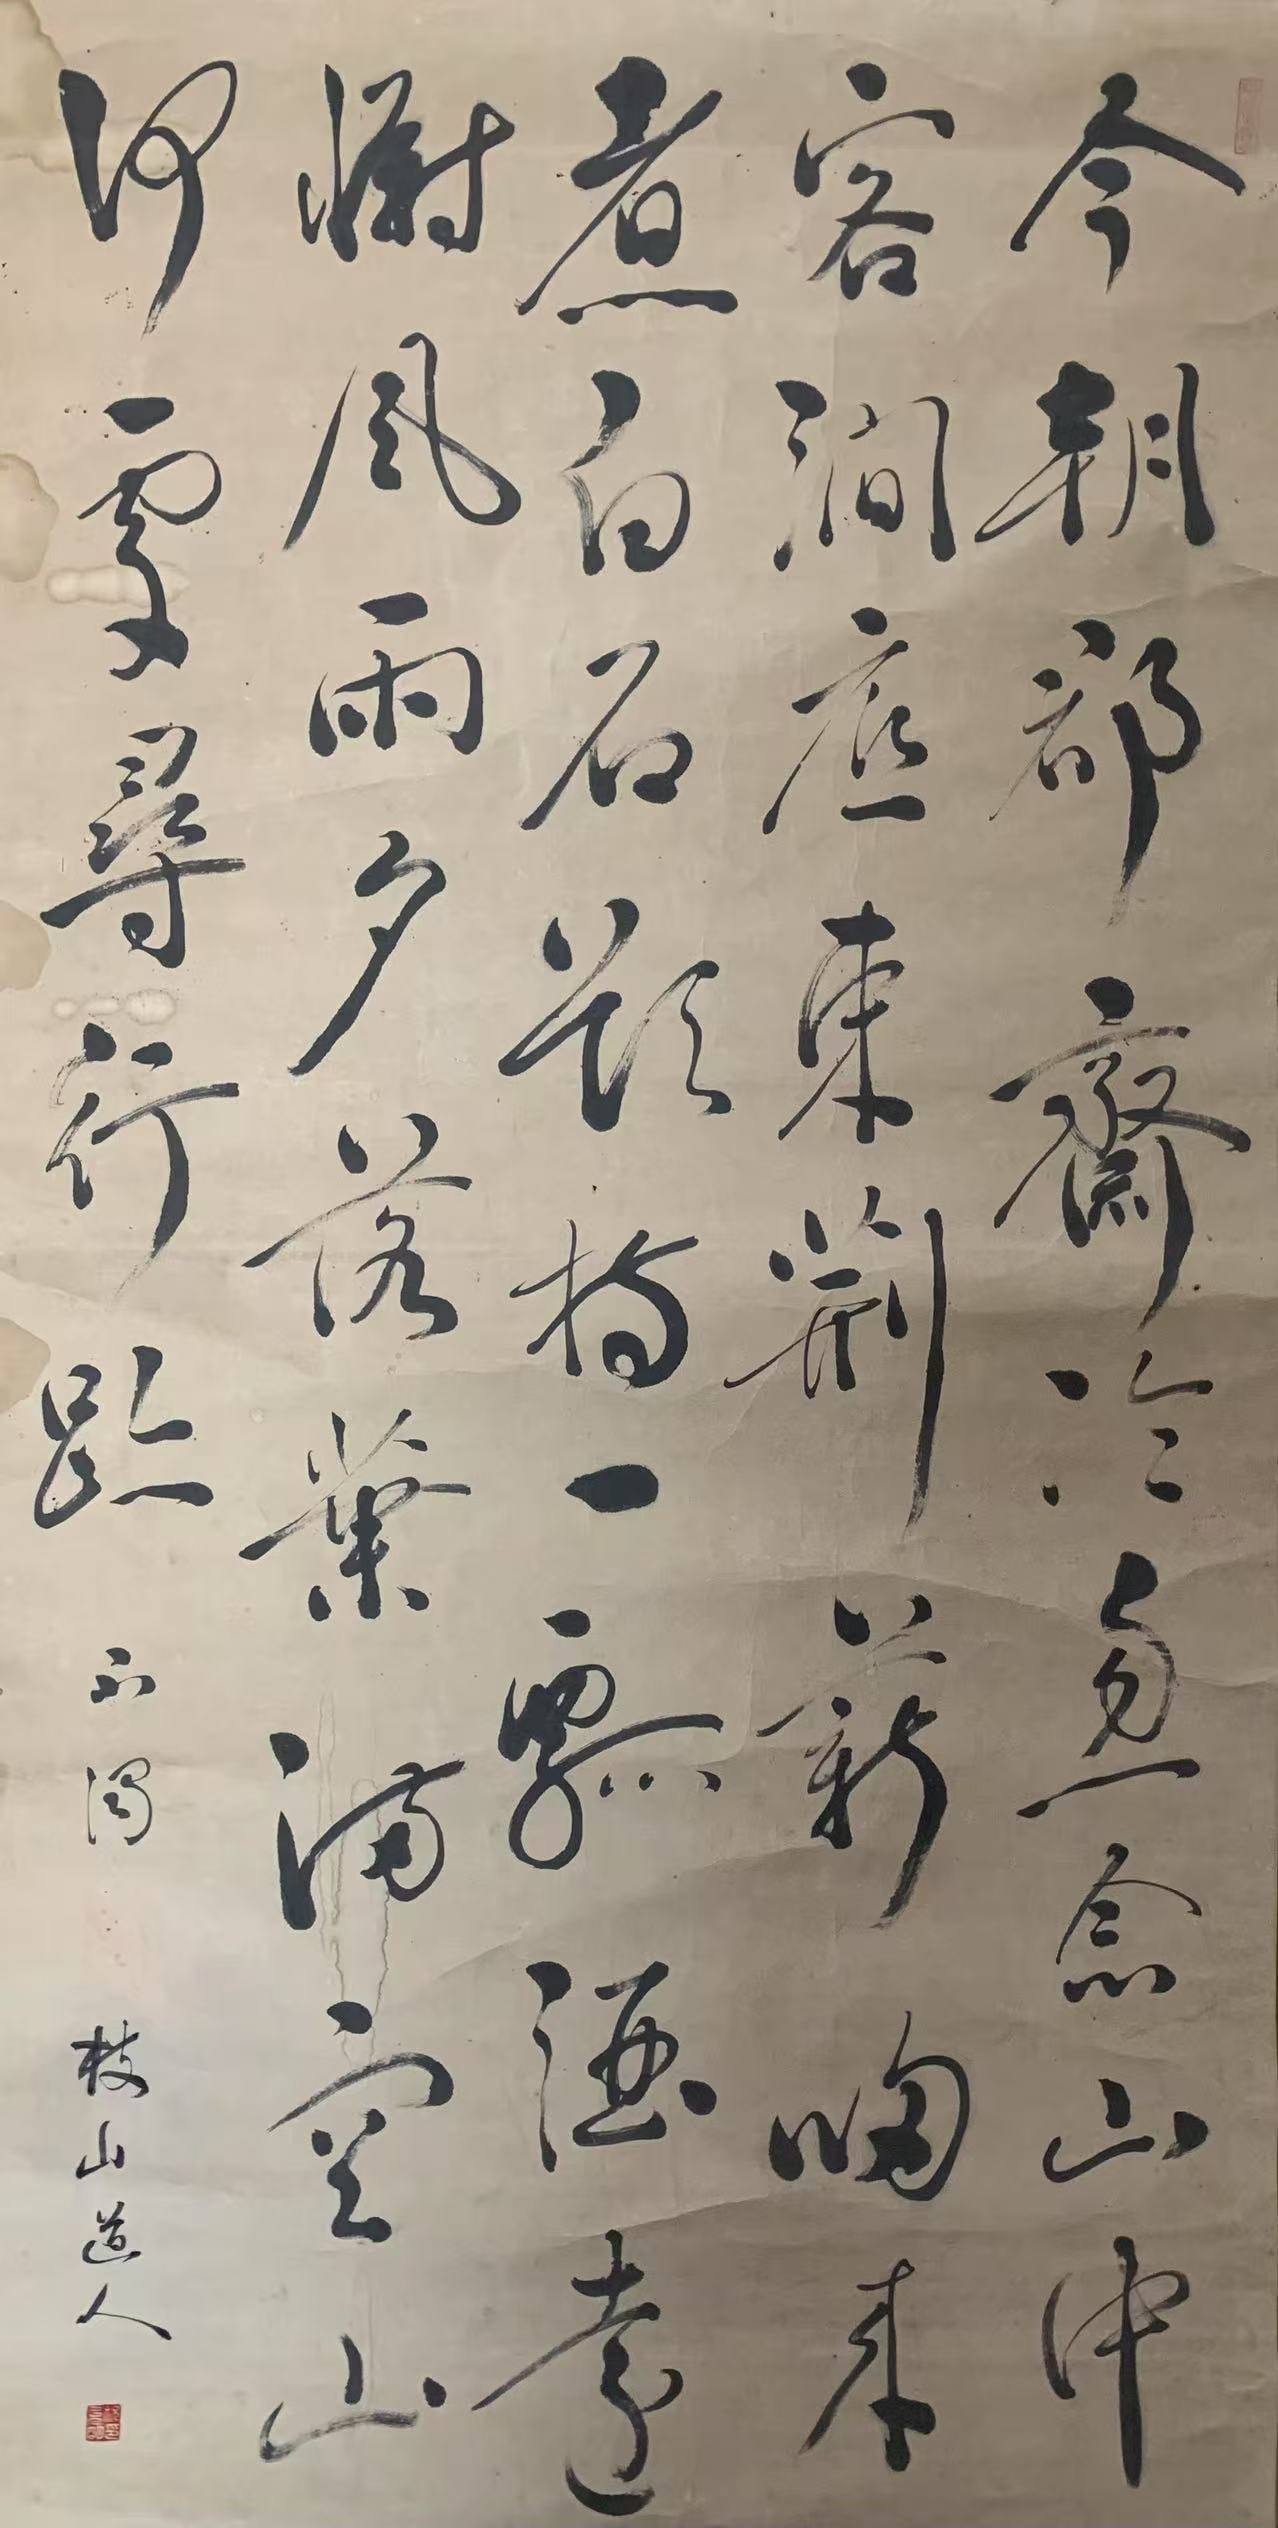 今朝郡齋冷忽念山中
客澗底束荊薪歸來
煮白石欲持一瓢酒遠
慰風雨夕落葉滿空山
何處尋行跡 枝山道人